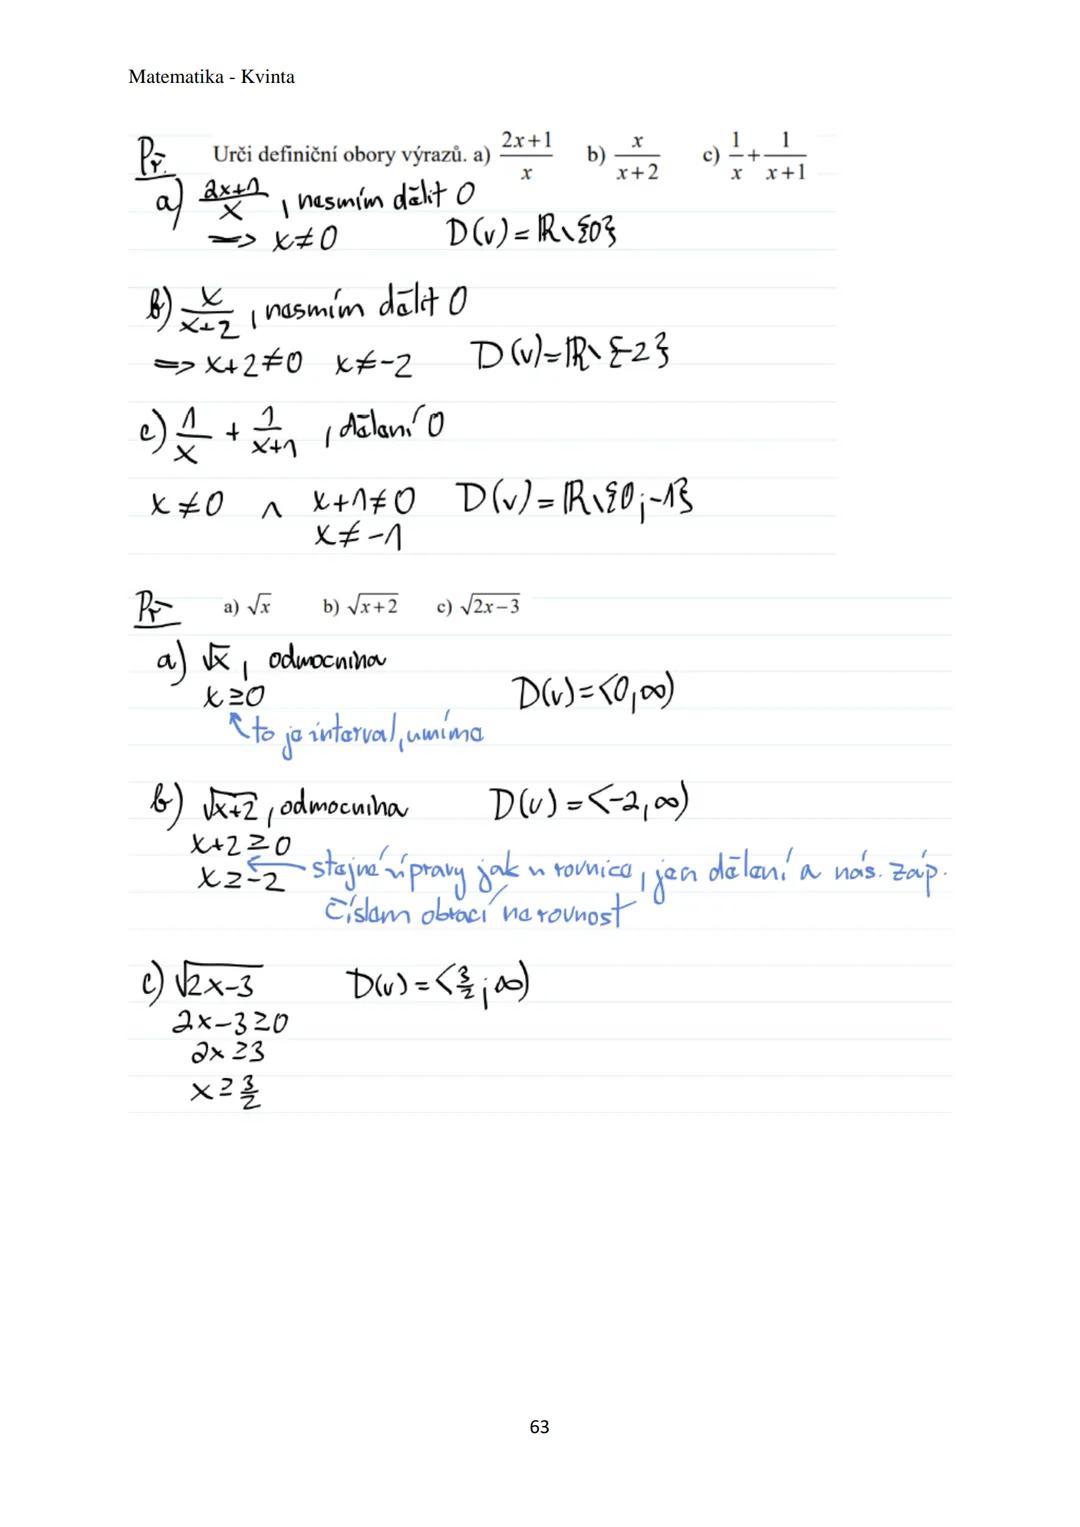 Matematika - Kvinta
Př. Urči definiční obory výrazů. a) (2x+1)/x b) x/(x+2) c) 1/x + 1/(x+1)
a) (2x+1)/x , nesmím dělit 0
=> x≠0 D(v) = ℝ∖{0}
b) x/(x+2) , nesmím dělit 0
=> x+2≠0 x≠-2 D(v)=ℝ∖{-2}
c) 1/x + 1/(x+1) , dělení 0
x≠0 ∧ x+1≠0 D(v) = ℝ∖{0;-1}
x≠-1
Př a) √x b) √(x+2) c) √(2x-3)
a) √x , odmocnina
x≥0 D(v)=<0,∞)
to je interval, umíme
b) √(x+2) , odmocnina D(v) =<-2,∞)
x+2≥0
x≥-2 stejné úpravy jak u rovnice, jen dělení a nás. záp.
číslem obrací nerovnost
c) √(2x-3) D(v) = <3/2;∞)
2x-3≥0
2x≥3
x≥3/2
63